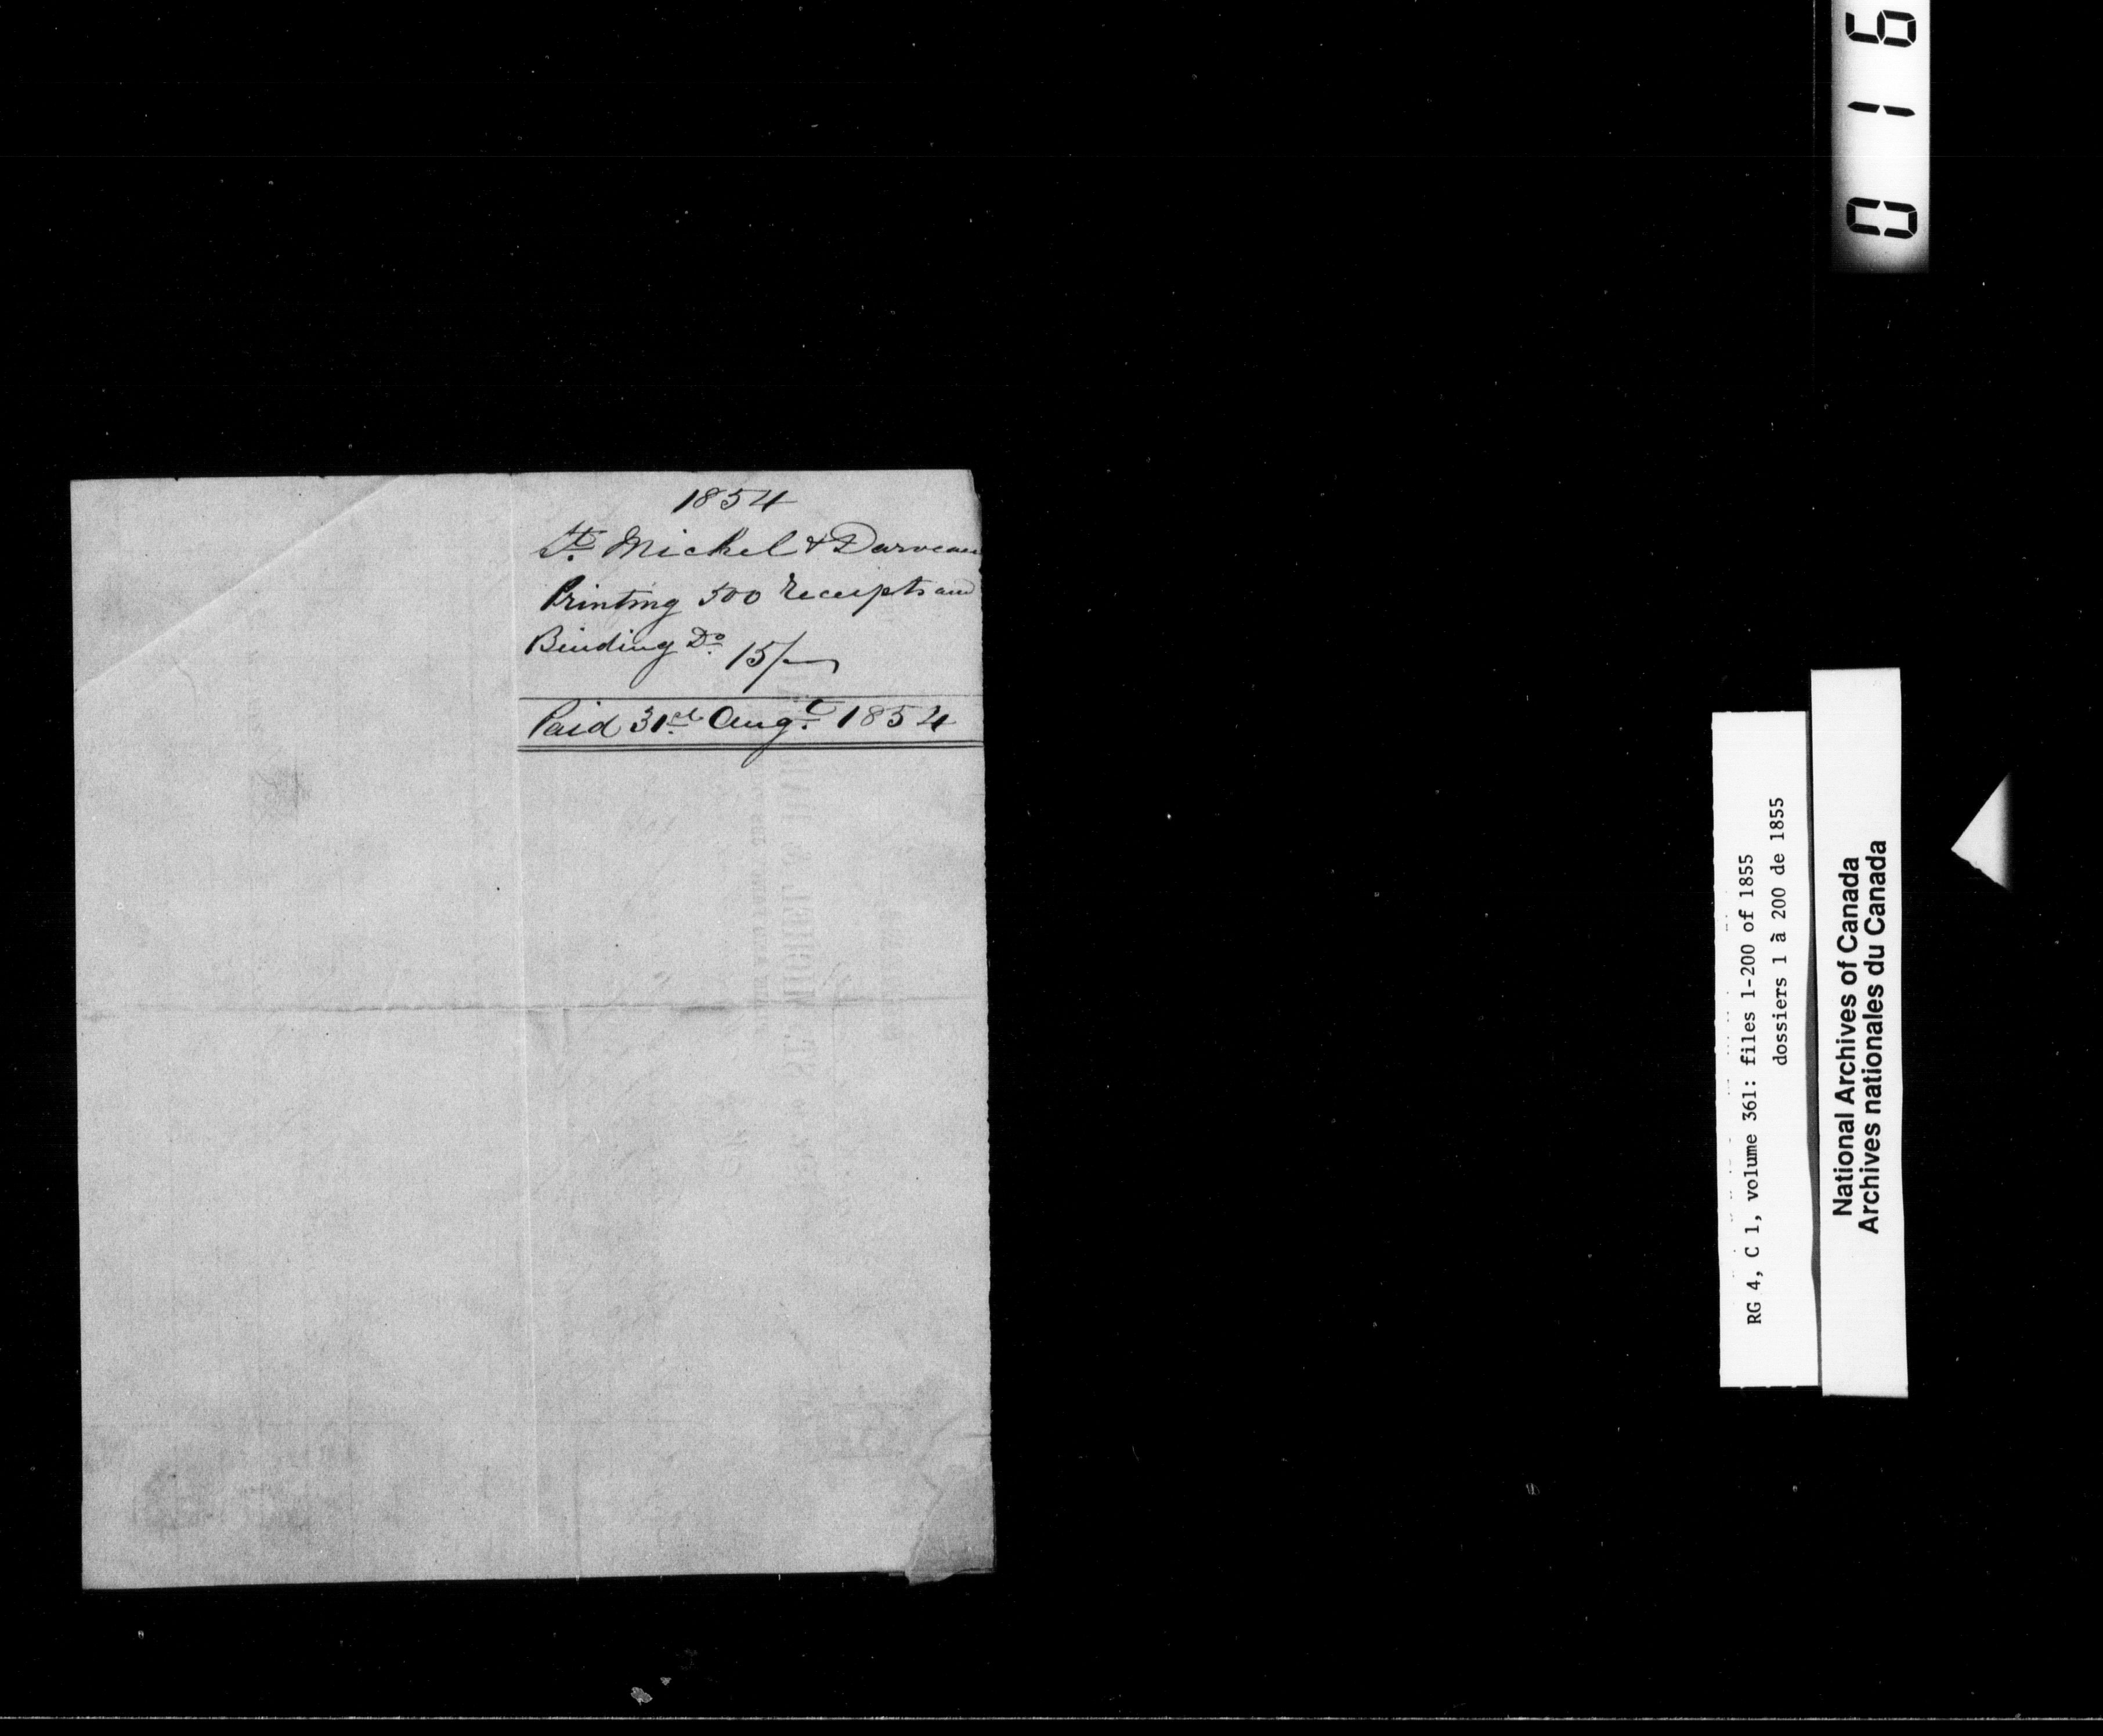 1854
St. Michel & Darveau
Printing 500 receipts and
Binding Do. 15/-
Paid 31st Augt. 1854
0 1 6
RG 4, C 1, volume 361: files 1-200 of 1855
dossiers 1 à 200 de 1855
National Archives of Canada
Archives nationales du Canada